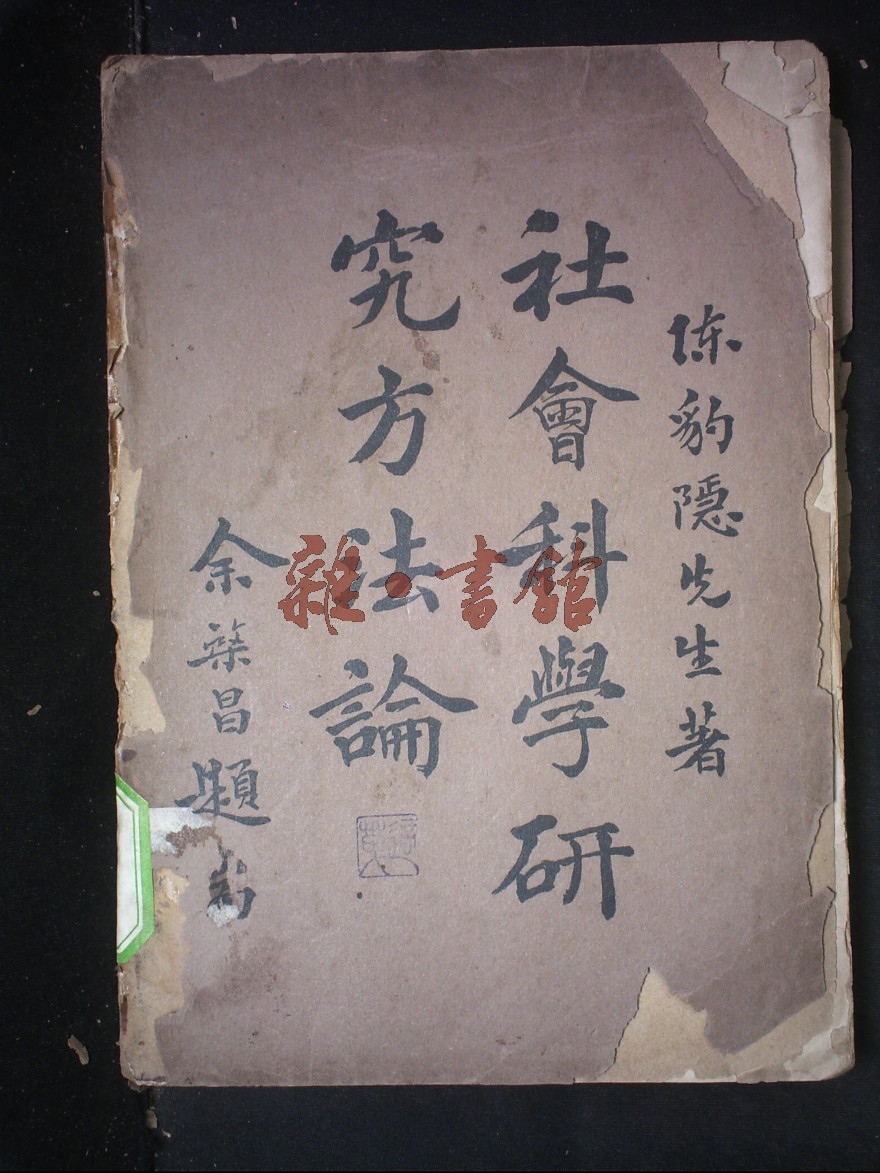 陳豹隱先生著
社會科學研
究方法論
余棨昌題
雜·書館